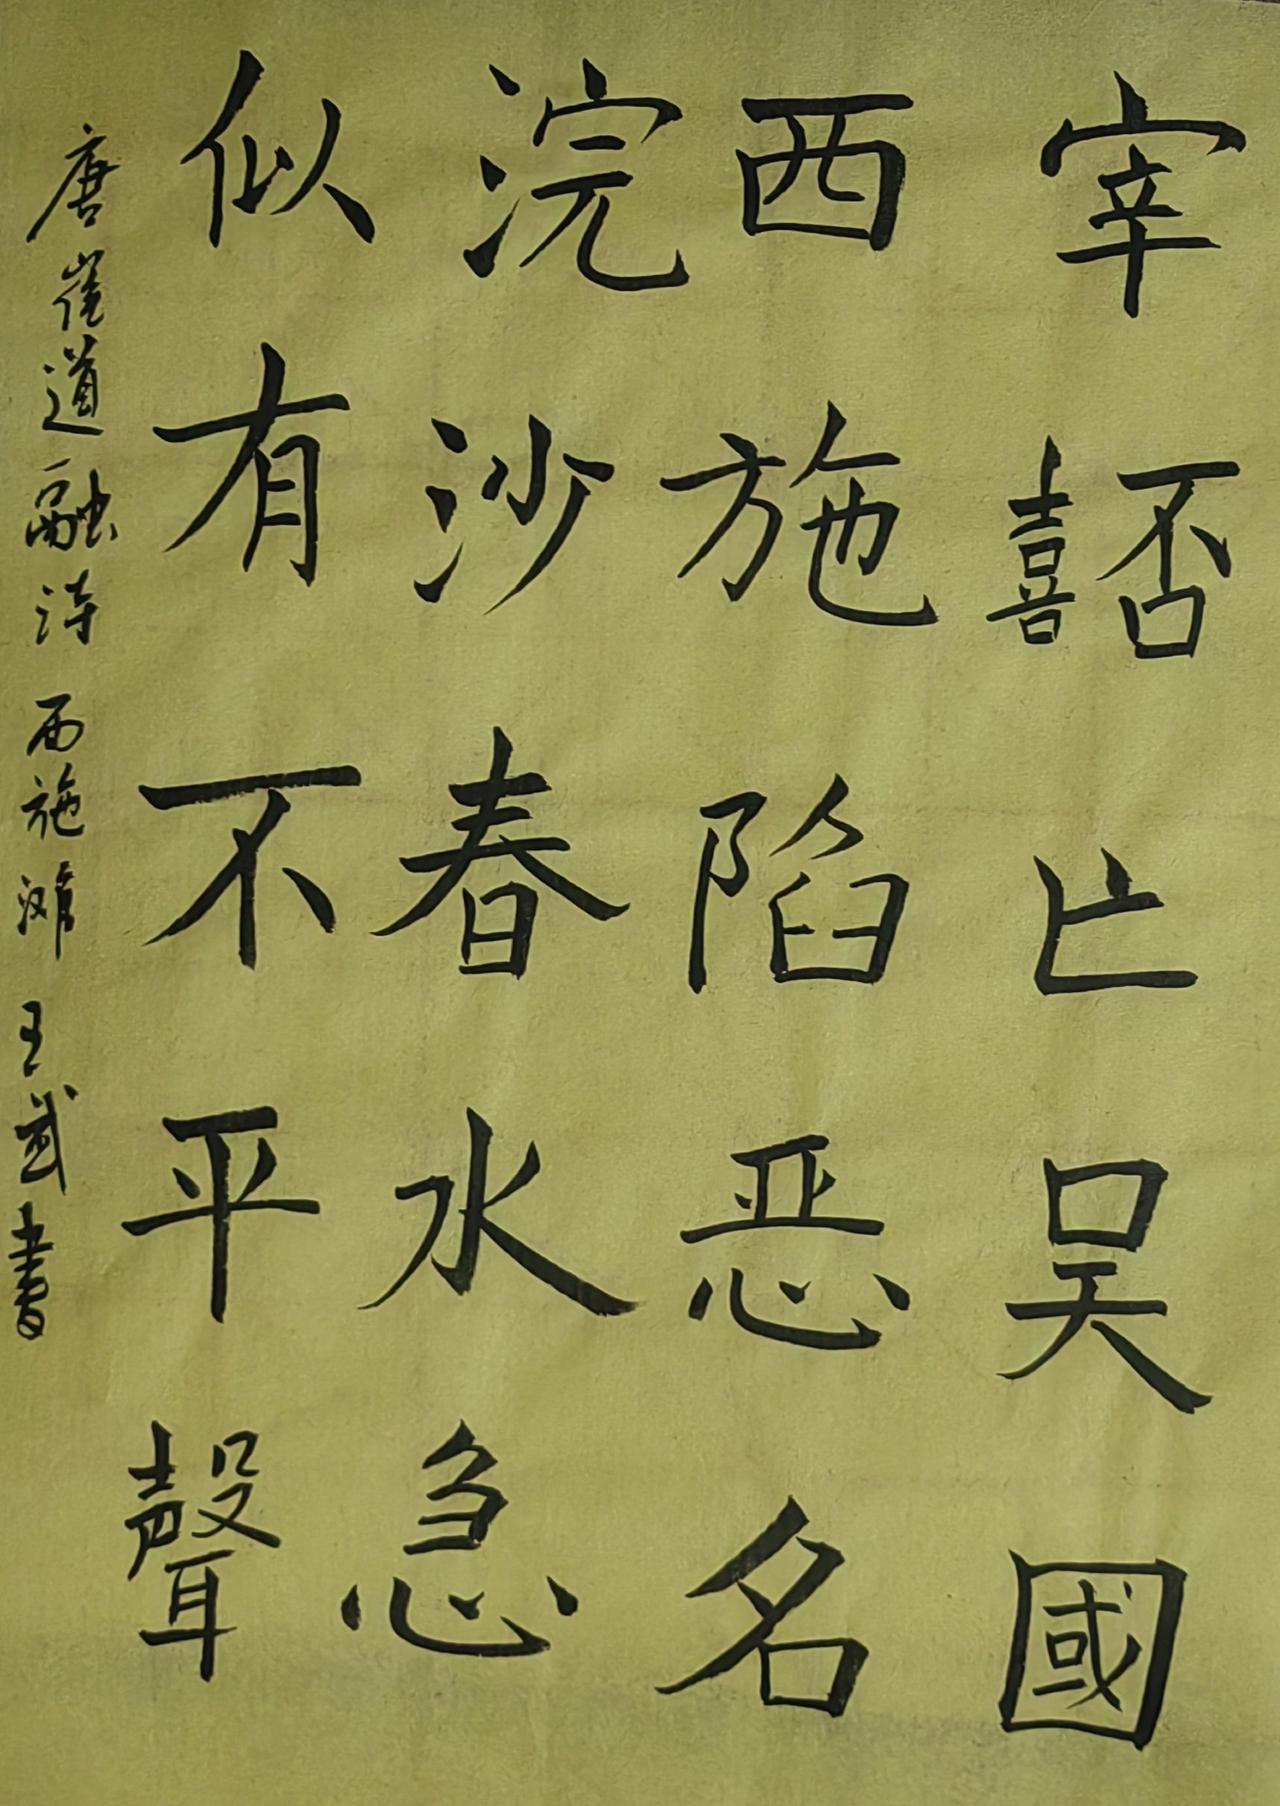 宰嚭亡吴國
西施陷恶名
浣沙春水急
似有不平聲
唐崔道融诗 西施滩 王武書